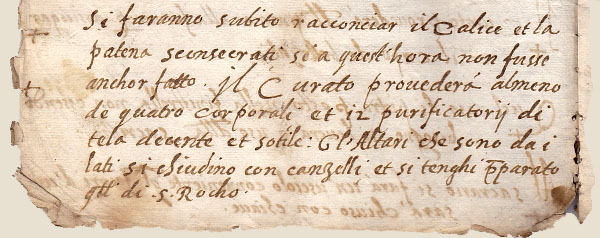 Si faranno subito racconciar il Calice et la
patena sconsecrati si a quest'hora non fusse
anchor fatto. Il Curato provederá almeno
de quatro Corporali et 12 purificatorij di
tela decente et sotile: Gl'Altari che sono da i
lati si chiudino con canzelli et si tenghi p̄parato
di .S. Rocho.